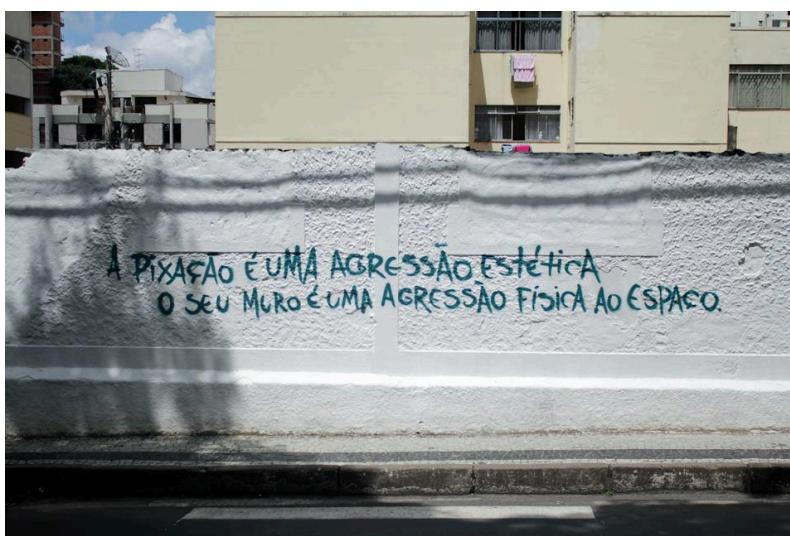 A PiXAÇÃO É UMA AGRESSÃO EStétiCA
O SEU MURO É UMA AGRESSÃO FÍSICA AO ESPAÇO.